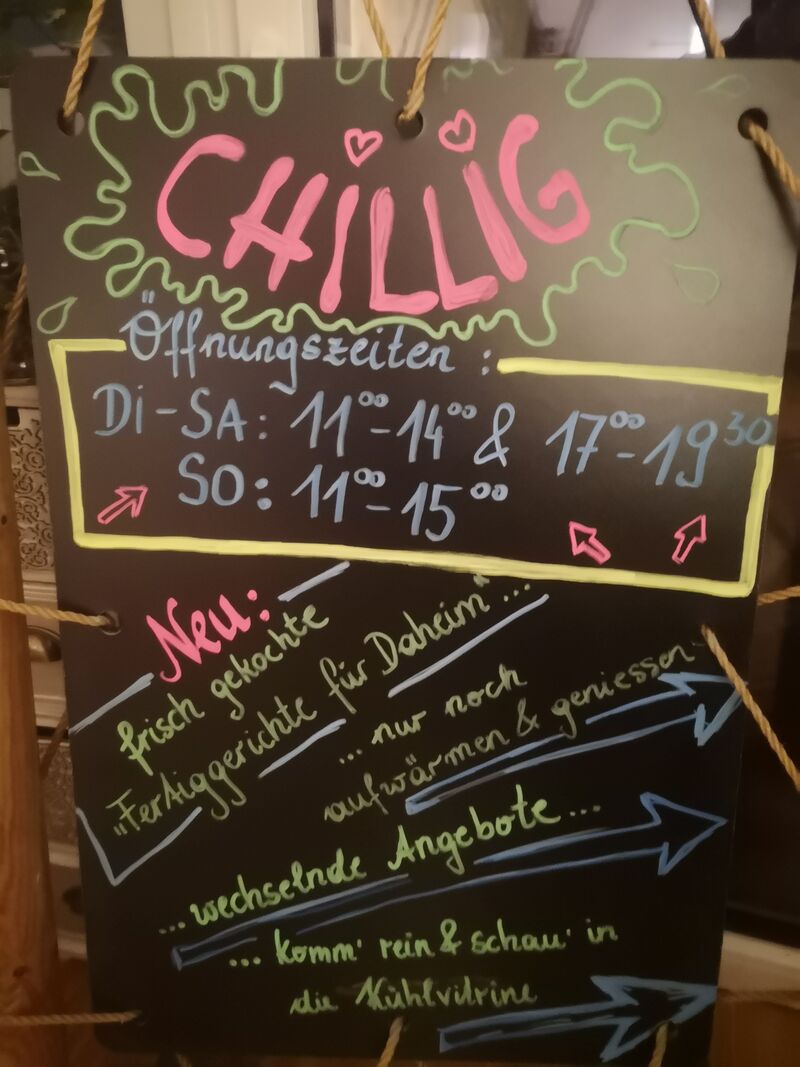 CHILLIG
Öffnungszeiten:
Di-SA: 11⁰⁰-14⁰⁰ & 17⁰⁰-19³⁰
SO: 11⁰⁰-15⁰⁰
Neu:
frisch gekochte
"Fertiggerichte für Daheim"...
...nur noch
aufwärmen & geniessen
...wechselnde Angebote...
...komm' rein & schau' in
die Kühlvitrine